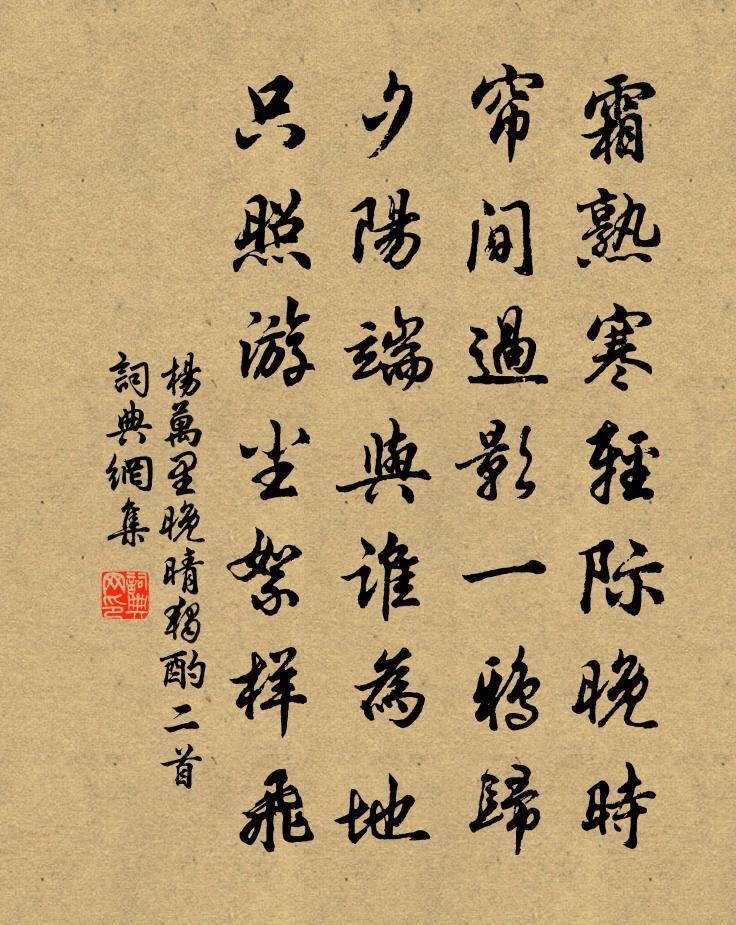 霜熟寒輕际晚時
帘間過影一鴉歸
夕陽端與誰為地
只照游尘絮样飛
楊萬里晚晴獨酌二首
詞典網集
詞典网印